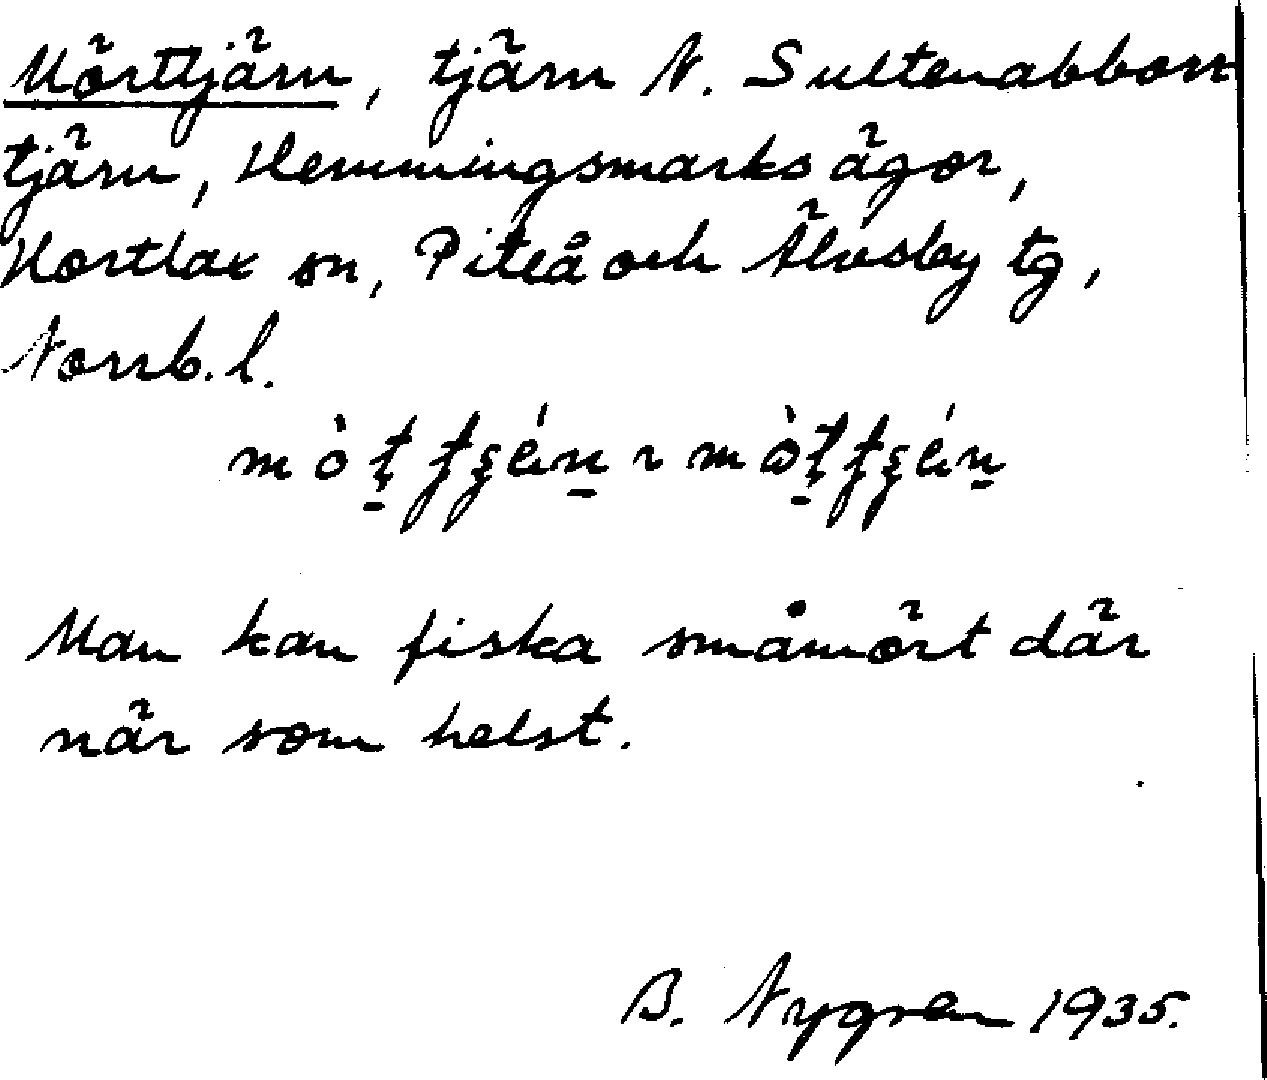 Mörttjärn, tjärn N. Sultenabborr
tjärn, Hemmingsmarks ägor,
Hortlax sn, Piteå och Älvsby tg,
Norrb. l.
Man kan fiska småmört där
när som helst.
B. Nygren 1935.